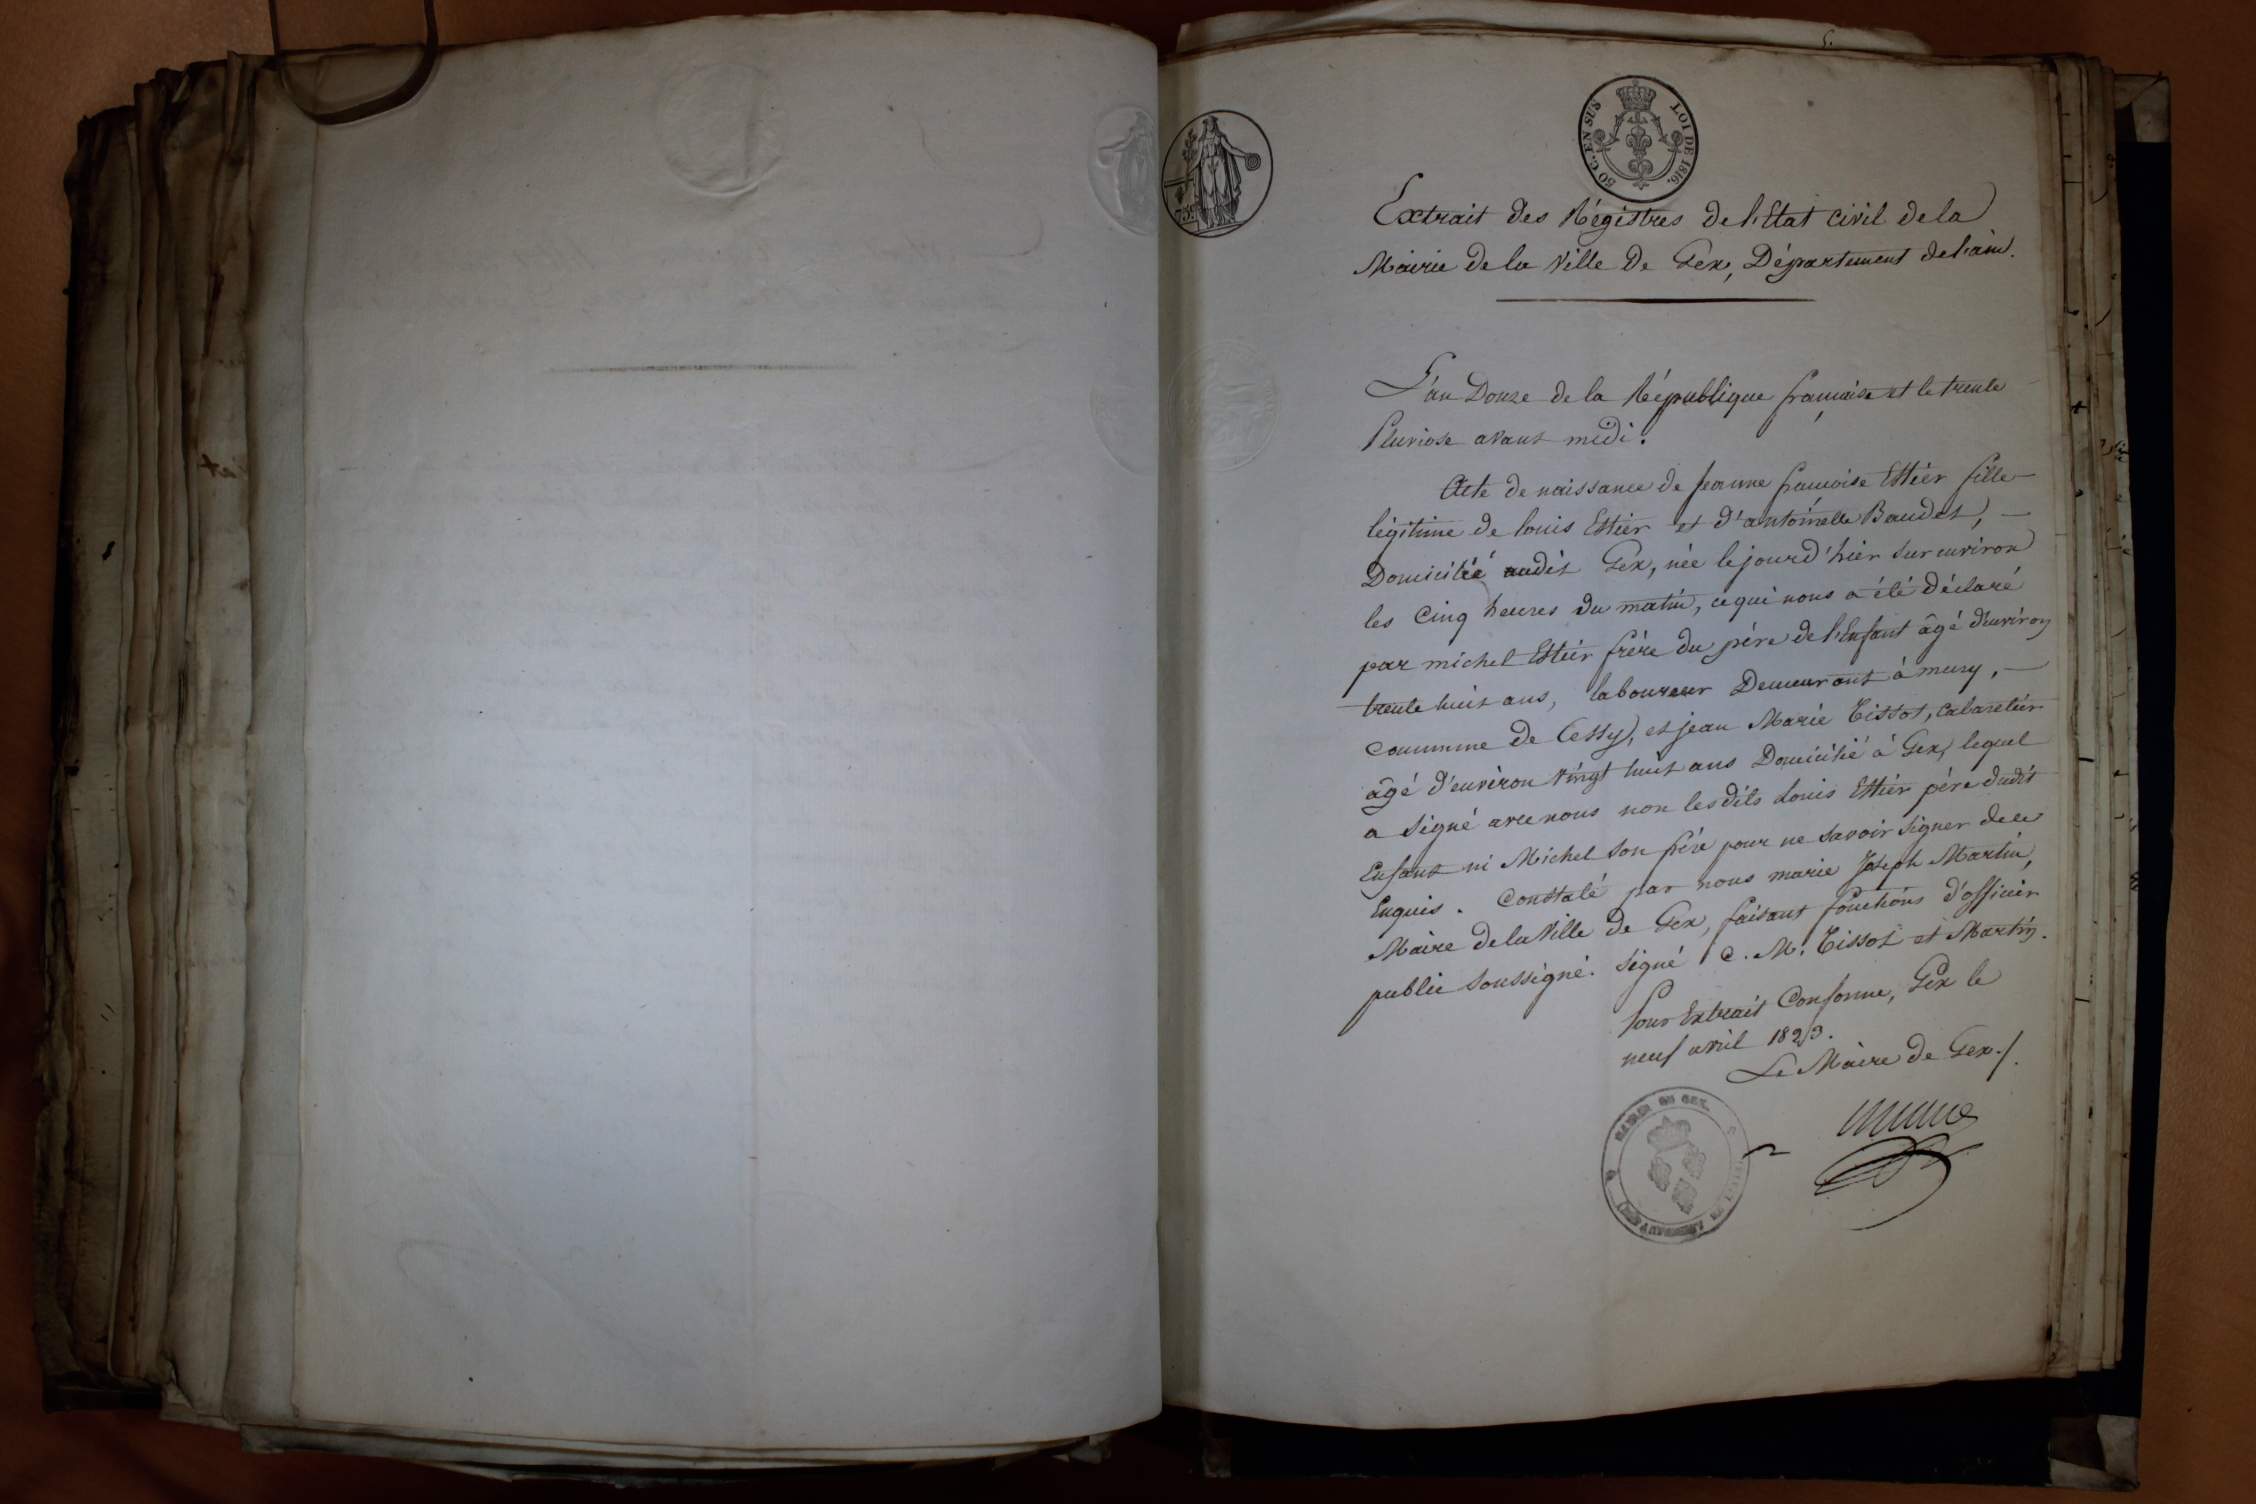 50 C. EN SUS
LOI DE 1816.
75
Extrait des Régistres de l'Etat civil de la
Mairie de la Ville de Gex, Département de l'ain.
L'an Douze de la République française et le trente
Pluviose avant midi.
Acte de naissance de Jeanne françoise Estier fille
légitime de louis Estier et d'antoinette Baudet,
Domicilié audit Gex, née le jour d'hier sur environ
les Cinq heures du matin, ce qui nous a été déclaré
par michel Estier frère du père de l'Enfant âgé d'environ
trente huit ans, laboureur Demeurant à mury,
commune de Cessy, et jean Marie Tissot, cabaretier
âgé d'environ vingt huit ans Domicilié à Gex, lequel
a signé avec nous non les dits Louis Estier père dudit
Enfant ni Michel son frère pour ne savoir signer de ce
Enquis. Constaté par nous marie Joseph Martin,
Maire de la Ville de Gex, faisant fonctions d'officier
public soussigné. Signé C. M. Tissot et Martin.
Pour Extrait Conforme, Gex le
neuf avril 1823.
Le Maire de Gex
MAIRIE DE GEX.